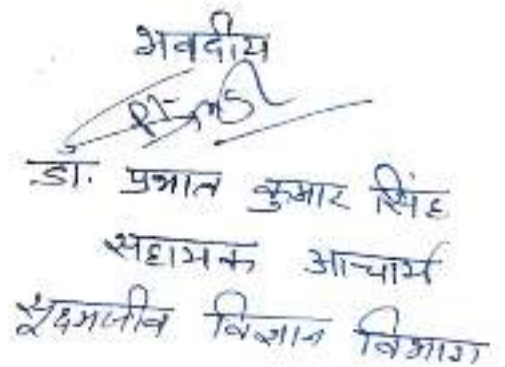 भवदीय
डॉ. प्रभात कुमार सिंह
सहायक आचार्य
सूक्ष्मजीव विज्ञान विभाग